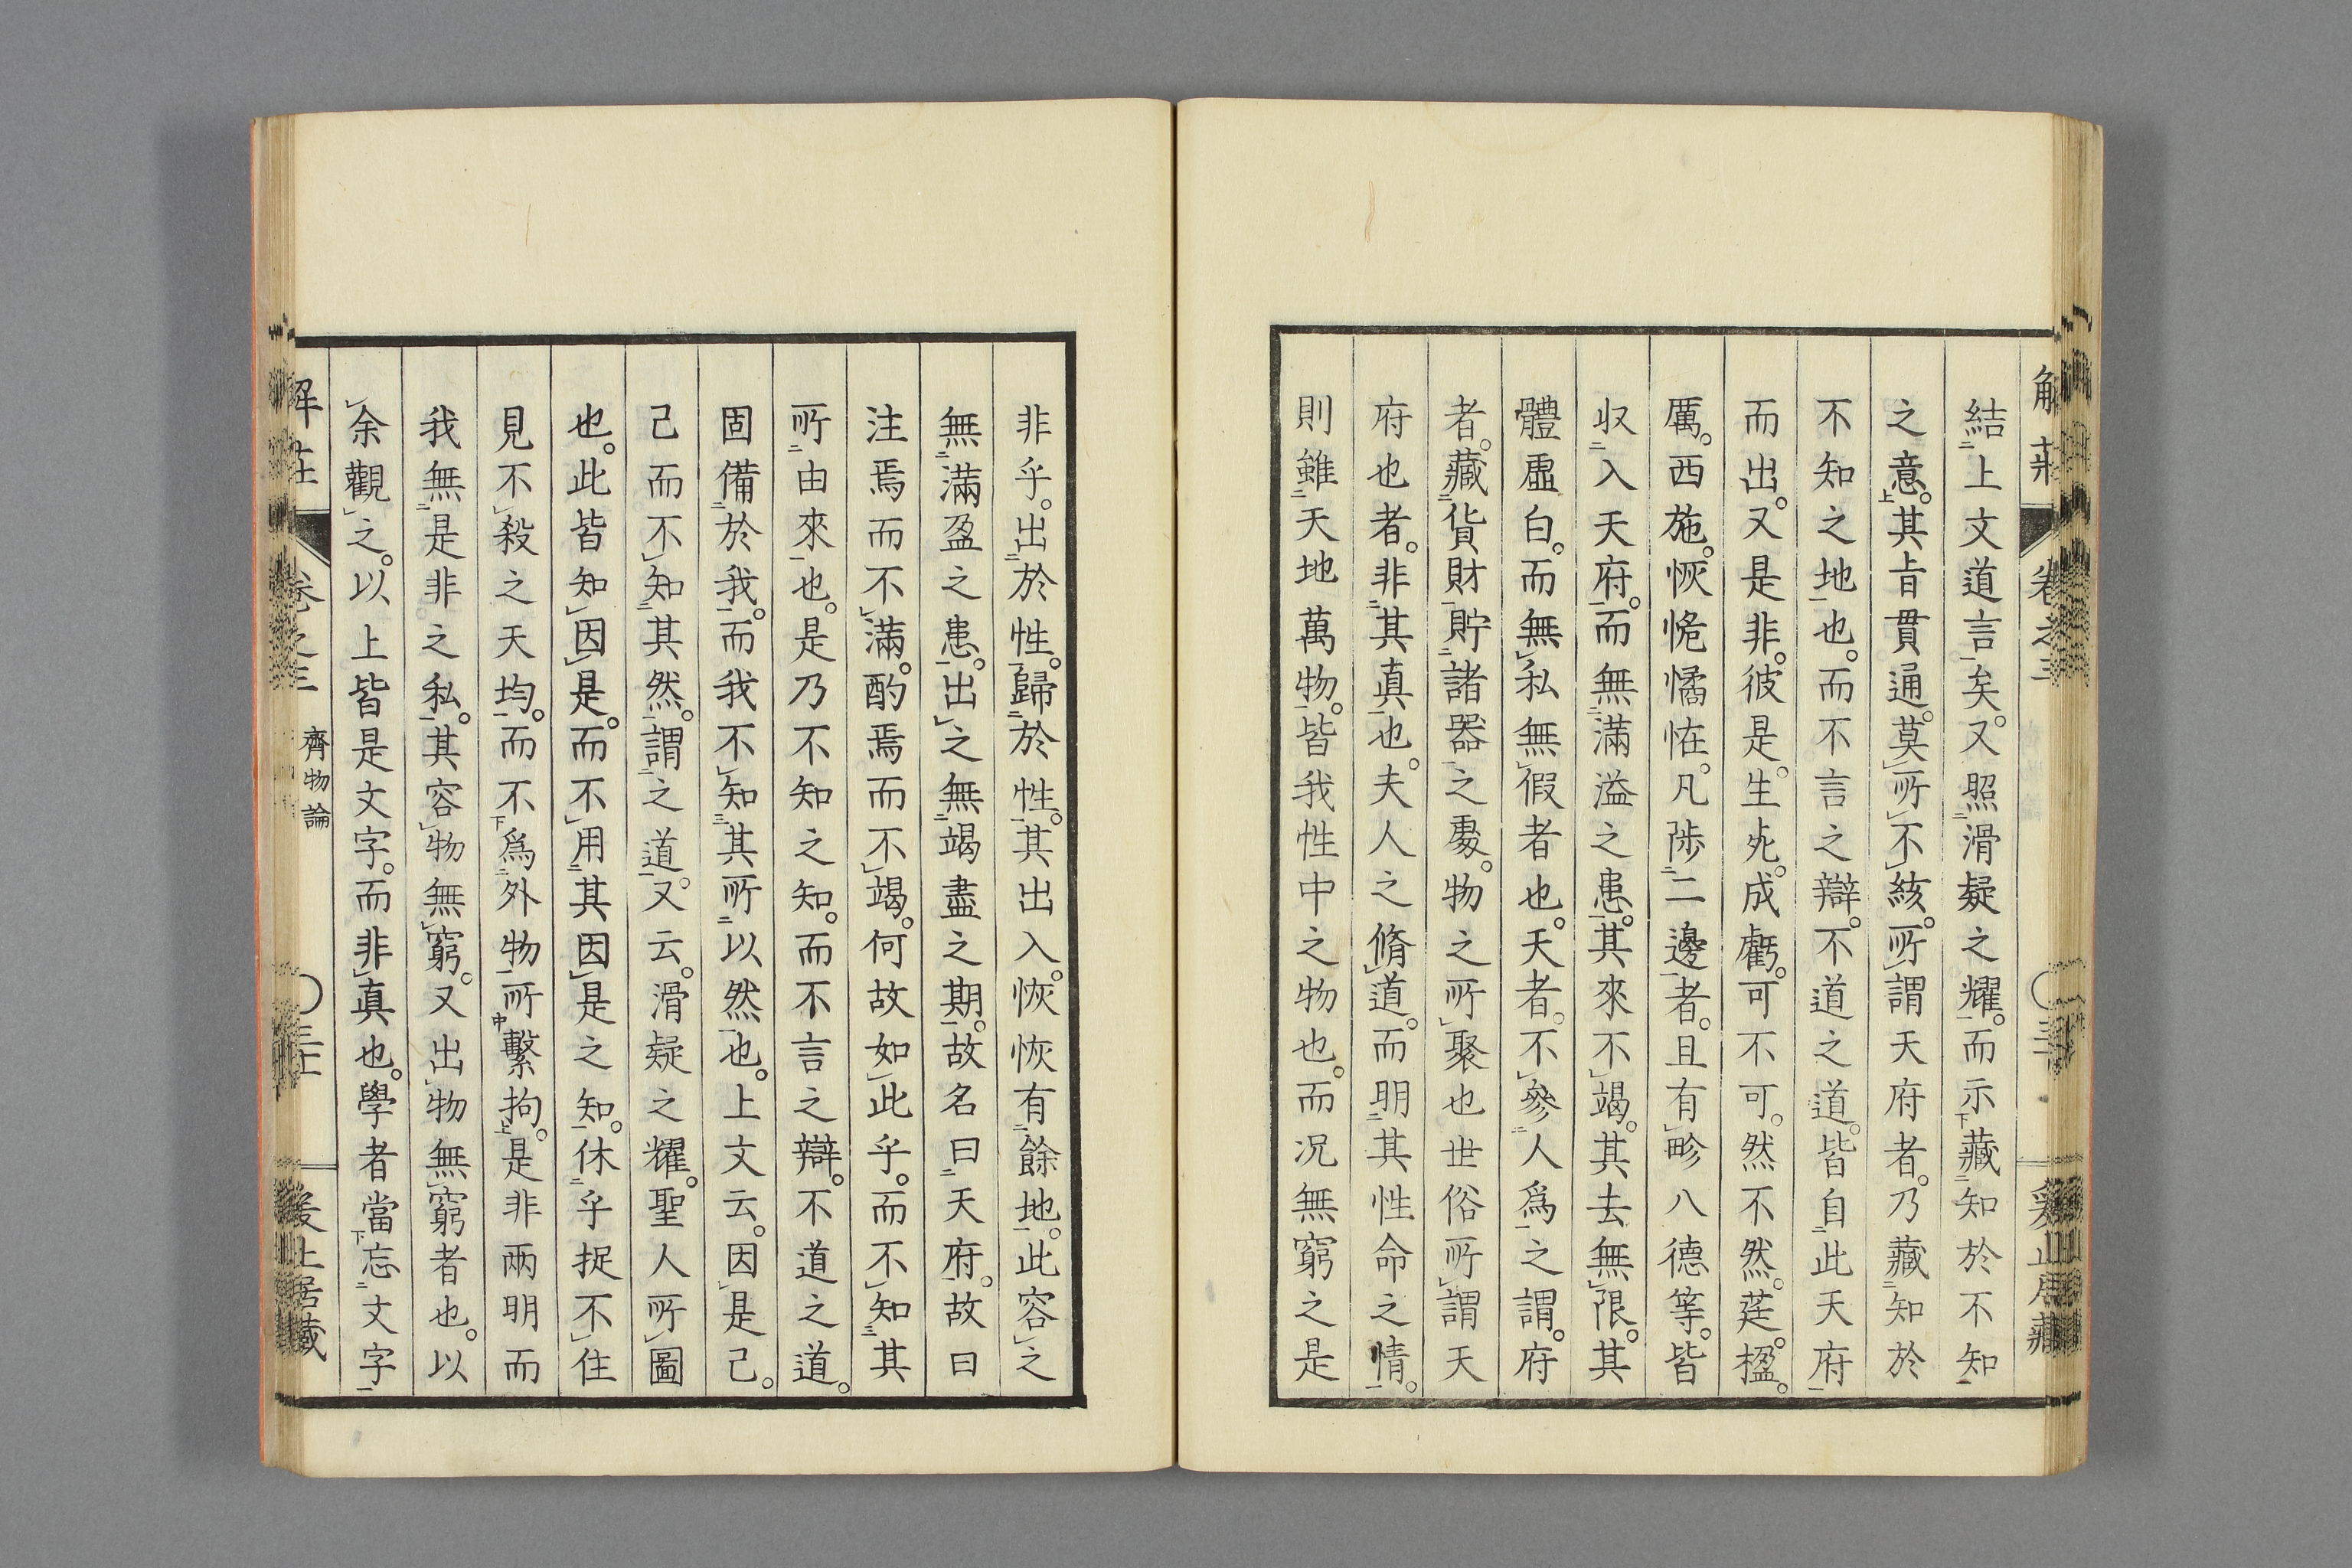 結上文道言矣。又照滑疑之耀。而示藏知於不知
之意。其旨貫通。莫所不絃。所謂天府者。乃藏知於
不知之地也。而不言之辯。不道之道。皆自此天府
而出。又是非。彼是。生死。成虧。可不可。然不然。莛。楹。
厲。西施。恢恑憰恠。凡陟二邊者。且有畛八德等。皆
收入天府。而無滿溢之患。其來不竭。其去無限。其
體虛白。而無私無假者也。天者。不參人爲之謂。府
者。藏貨財貯諸器之處。物之所聚也世俗所謂天
府也者。非其真也。夫人之脩道。而明其性命之情。
則雖天地萬物。皆我性中之物也。而况無窮之是
非乎。出於性。歸於性。其出入。恢恢有餘地。此容之
無滿盈之患。出之無竭盡之期。故名曰天府。故曰
注焉而不滿。酌焉而不竭。何故如此乎。而不知其
所由來也。是乃不知之知。而不言之辯。不道之道。
固備於我。而我不知其所以然也。上文云。因是已。
已而不知其然。謂之道。又云。滑疑之耀。聖人所圖
也。此皆知因是。而不用其因是之知。休乎捉不住
見不殺之天均。而不爲外物所繫拘。是非兩明而
我無是非之私。其容物無窮。又出物無窮者也。以
余觀之。以上皆是文字。而非真也。學者當忘文字
卷之三 齊物論